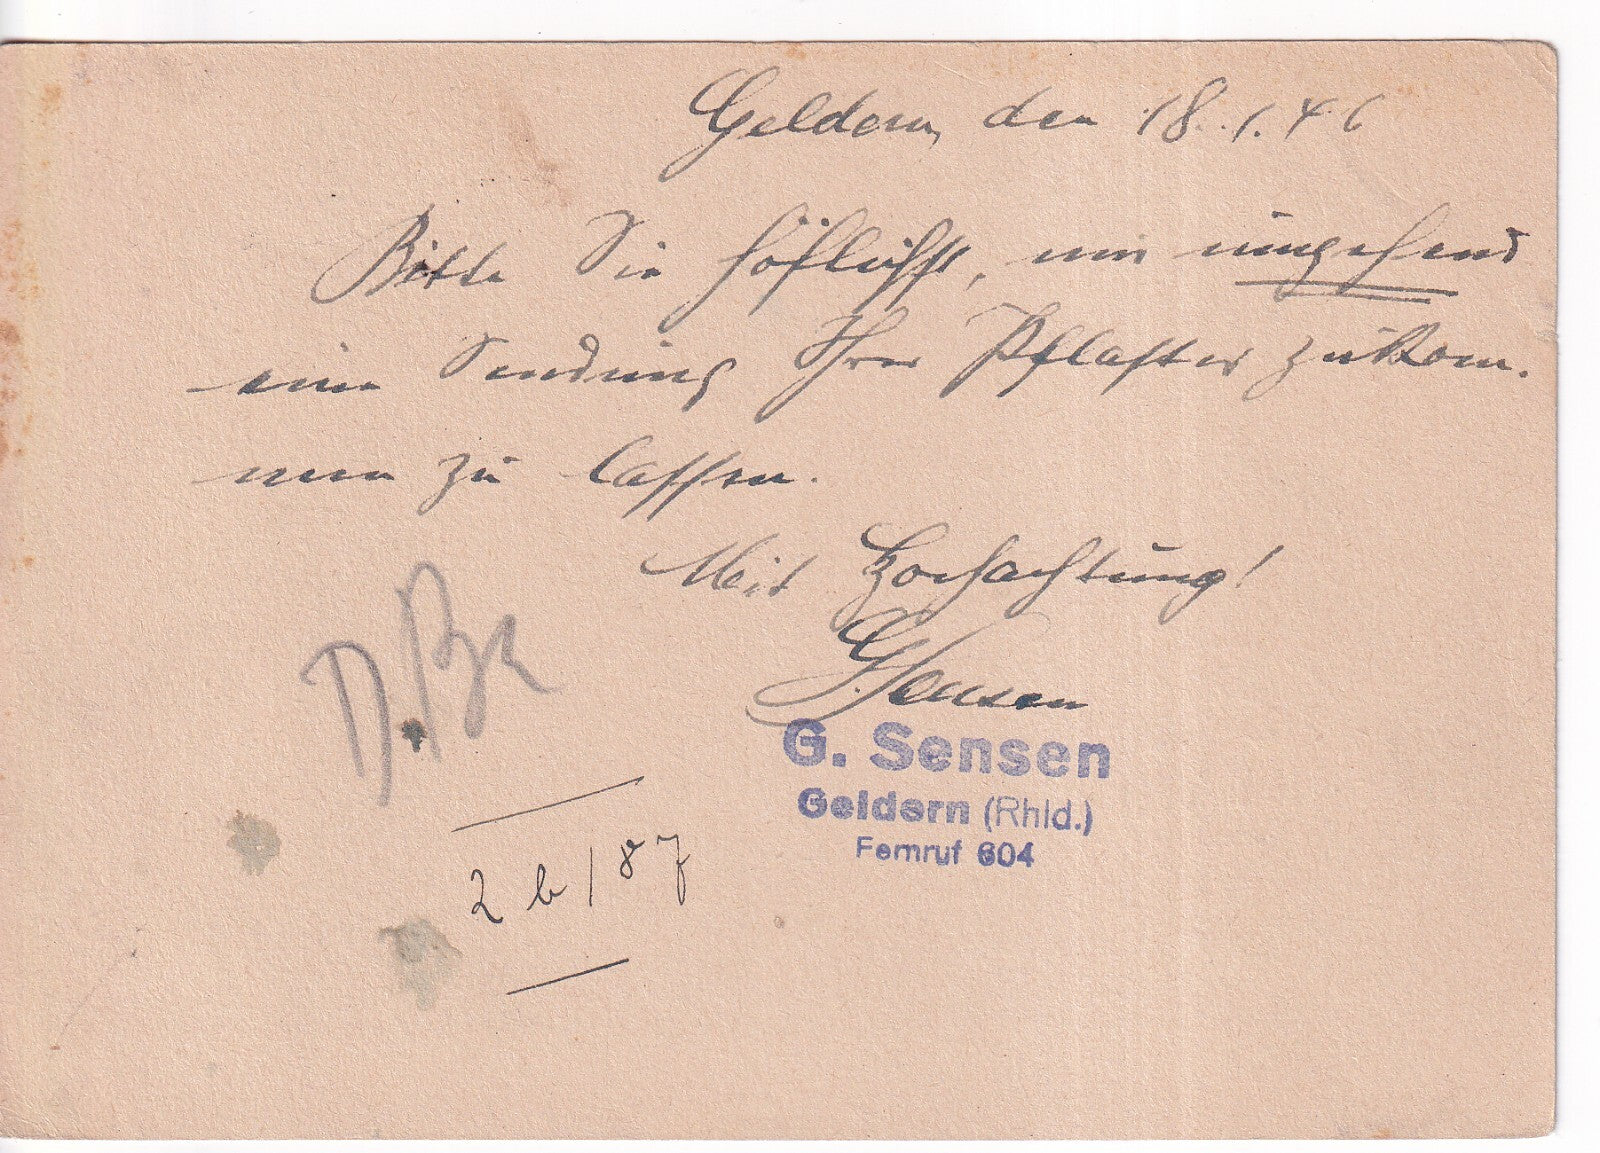 Geldern, den 18.1.46
Bitte Sie höflichst, mir umgehend
eine Sendung Ihrer Pflaster zukom-
men zu lassen.
Mit Hochachtung!
G Sensen
G. Sensen
Geldern (Rhld.)
Fernruf 604
2 b / 87